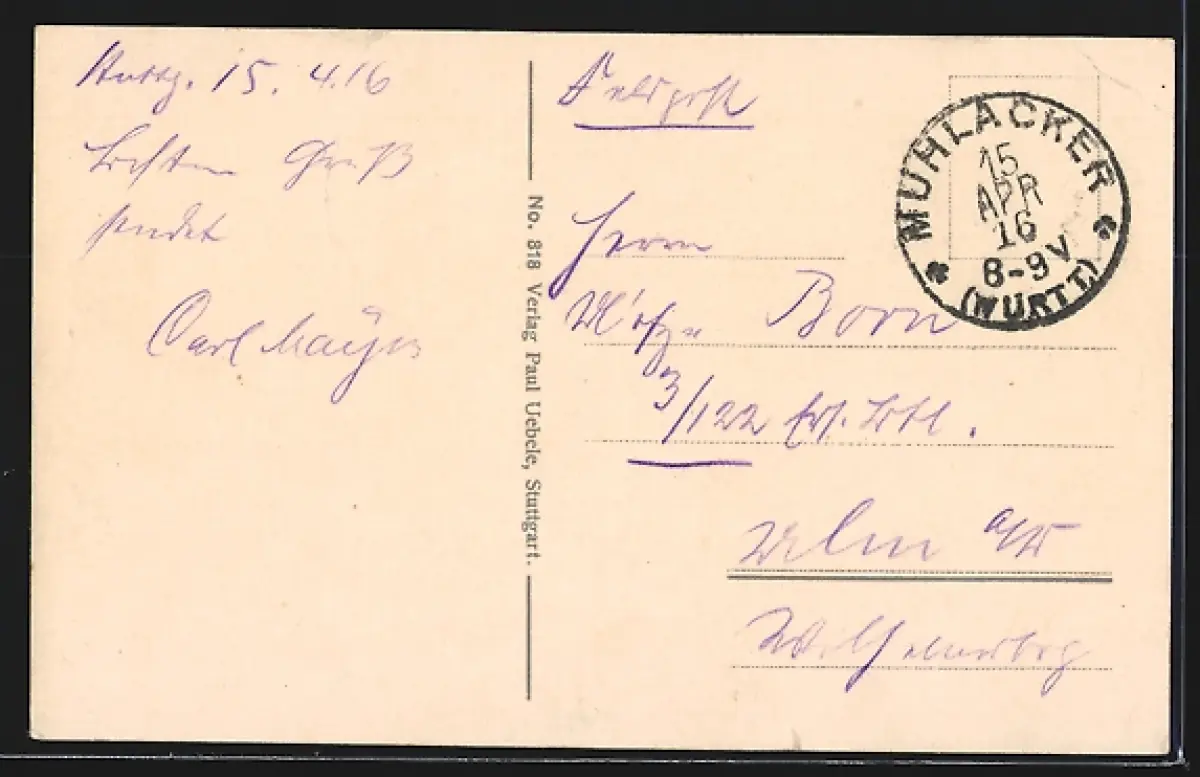 Stuttg. 15. 4. 16
Besten Gruß
sendet
Carl Mayer
No. 818 Verlag Paul Uebele, Stuttgart.
Feldpost
MÜHLACKER
15
APR
16
8-9V
(WÜRTT.)
Herrn
Born
3/122 Ers. Btl.
Ulm a/D
Wilhelmsbg